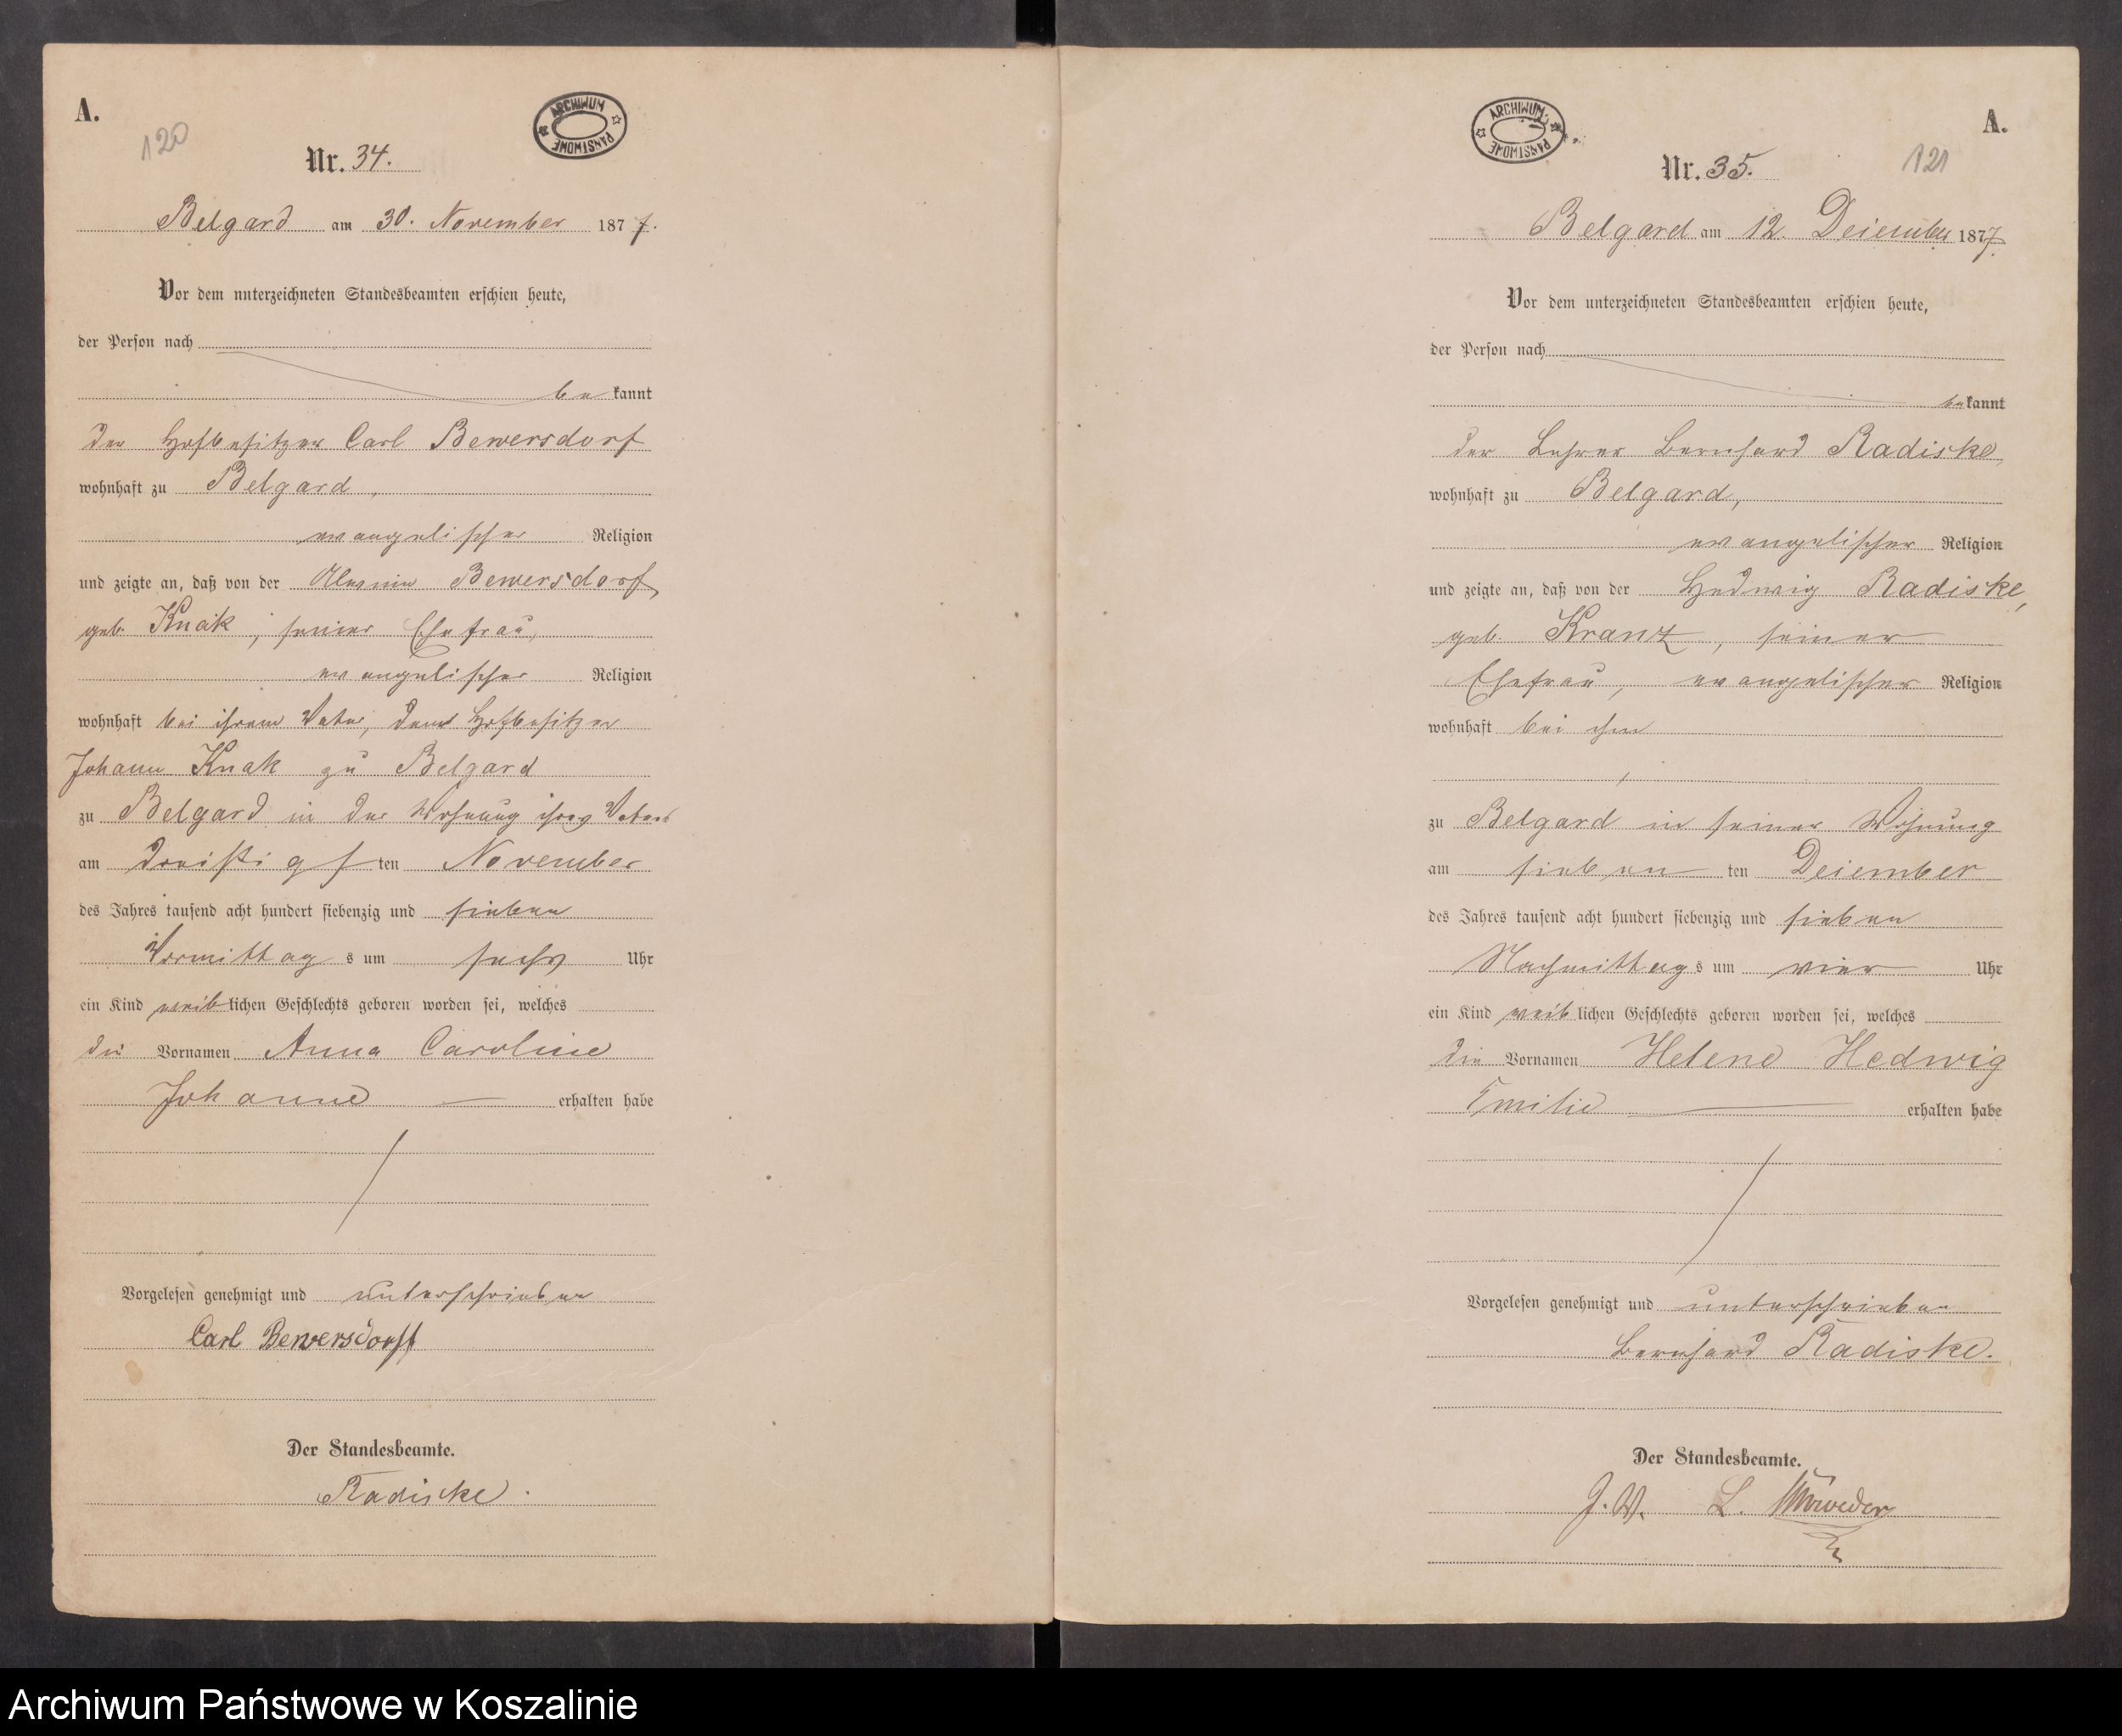 A.
120
ARCHIWUM PAŃSTWOWE
Nr. 34.
Belgard am 30. November 1877.
Vor dem unterzeichneten Standesbeamten erschien heute,
der Person nach
bekannt
der Hofbesitzer Carl Bewersdorf
wohnhaft zu Belgard,
evangelischer Religion
und zeigte an, daß von der Bewersdorf,
geb. Knak, seiner Ehefrau,
evangelischer Religion
wohnhaft bei ihrem Vater, dem Hofbesitzer
Johann Knak zu Belgard
zu Belgard in der Wohnung ihres Vaters
am dreißigsten November
des Jahres tausend acht hundert siebenzig und sieben
Vormittags um sechs Uhr
ein Kind weiblichen Geschlechts geboren worden sei, welches
die Vornamen Anna Caroline
Johanne erhalten habe
Vorgelesen genehmigt und unterschrieben
Carl Bewersdorff
Der Standesbeamte.
Radiske.
A.
121
ARCHIWUM PAŃSTWOWE
Nr. 35.
Belgard am 12. Deiember 1877.
Vor dem unterzeichneten Standesbeamten erschien heute,
der Person nach
bekannt
der Lehrer Bernhard Radiske,
wohnhaft zu Belgard,
evangelischer Religion
und zeigte an, daß von der Hedwig Radiske,
geb. Kranz, seiner
Ehefrau, evangelischer Religion
wohnhaft bei ihm
zu Belgard in seiner Wohnung
am siebenten Deiember
des Jahres tausend acht hundert siebenzig und sieben
Nachmittags um vier Uhr
ein Kind weiblichen Geschlechts geboren worden sei, welches
die Vornamen Helene Hedwig
Emilie erhalten habe
Vorgelesen genehmigt und unterschrieben
Bernhard Radiske.
Der Standesbeamte.
J. V. L.
Archiwum Państwowe w Koszalinie